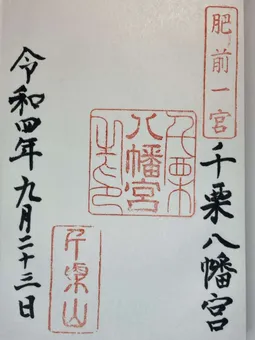 肥前一宮
千栗八幡宮
千栗
八幡宮
之印
千栗山
令和四年九月二十三日